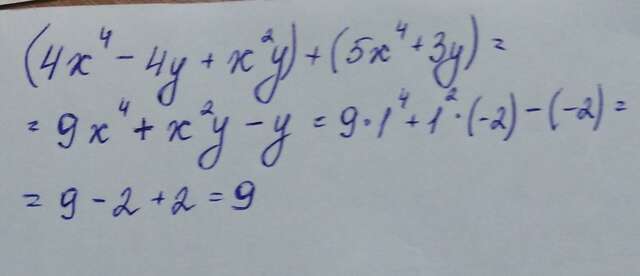 (4x⁴ - 4y + x²y) + (5x⁴ + 3y) =
= 9x⁴ + x²y - y = 9·1⁴ + 1²·(-2) - (-2) =
= 9 - 2 + 2 = 9